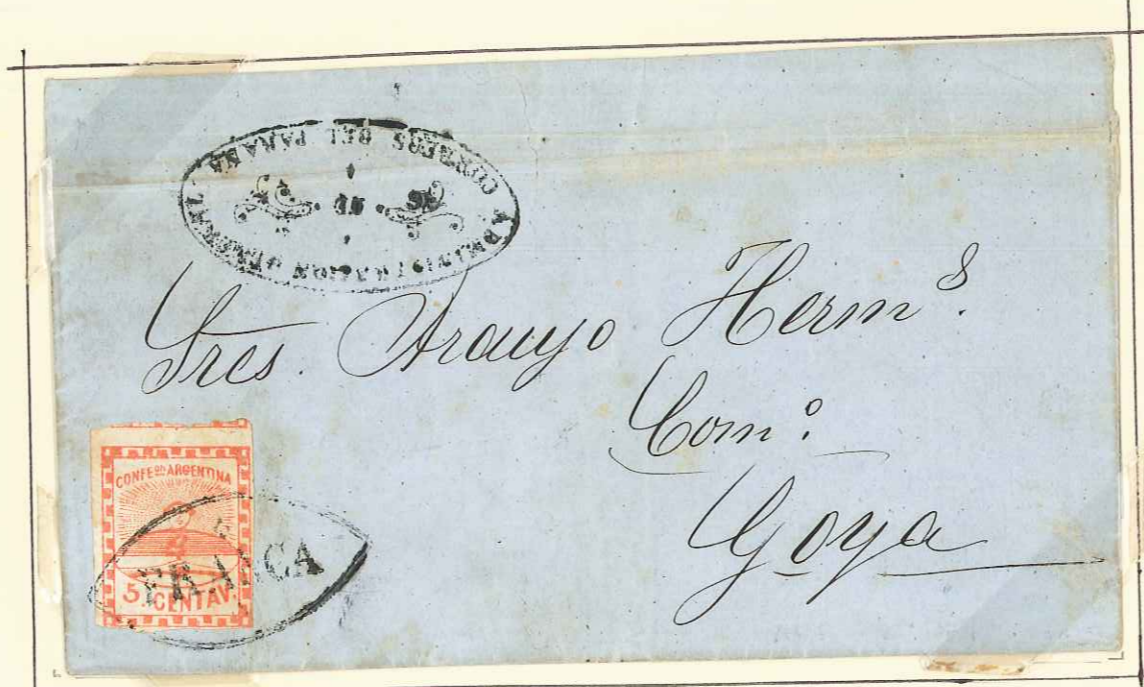 ADMINISTRACION GENERAL
DE
CORREOS DEL PARANA
Sres. Araujo Herms.
Como.
Goya
CONFEon ARGENTINA
5 CENTAVs
FRANCA